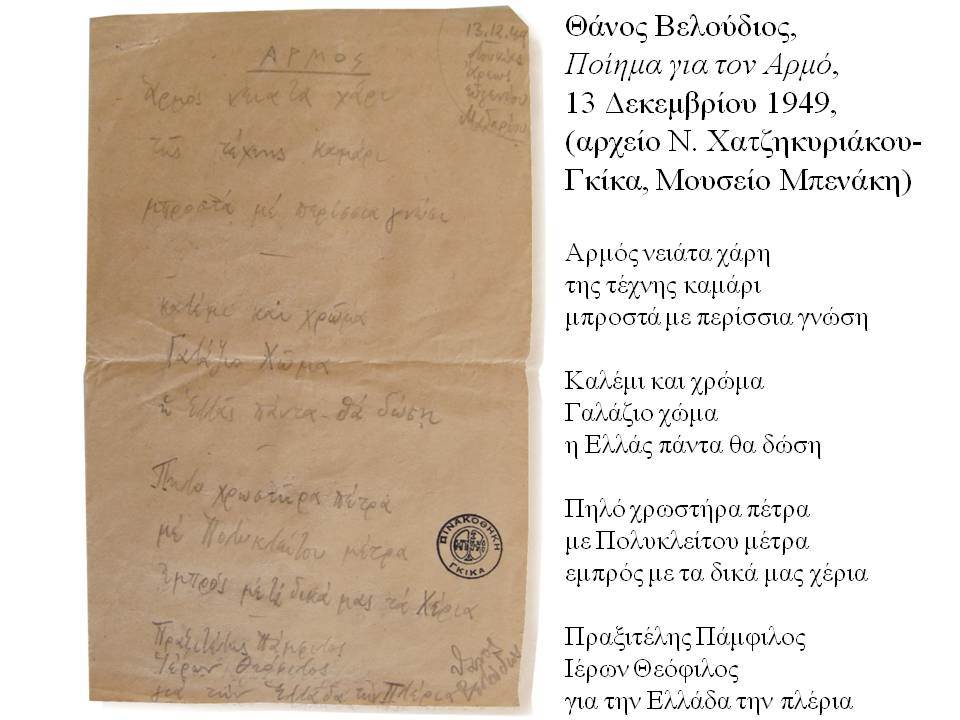 13.12.49
ΑΡΜΟΣ
Ἁρμός νειάτα χάρι
τῆς τέχνης καμάρι
μπροστά μέ περίσσια γνώσι
καλέμι καί χρῶμα
Γαλάζιο Χῶμα
ἡ Ἑλλάς πάντα θά δώση
Πηλό χρωστήρα πέτρα
μέ Πολυκλείτου μέτρα
Ἐμπρός μέ τά δικά μας τά χέρια
Πραξιτέλης Πάμφιλος
Ἱέρων Θεόφιλος
γιά τήν Ἑλλάδα τήν Πλέρια
Θάνος
Βελούδιος
ΠΙΝΑΚΟΘΗΚΗ
ΓΚΙΚΑ
Θάνος Βελούδιος,
Ποίημα για τον Αρμό,
13 Δεκεμβρίου 1949,
(αρχείο Ν. Χατζηκυριάκου-
Γκίκα, Μουσείο Μπενάκη)
Αρμός νειάτα χάρη
της τέχνης καμάρι
μπροστά με περίσσια γνώση
Καλέμι και χρώμα
Γαλάζιο χώμα
η Ελλάς πάντα θα δώση
Πηλό χρωστήρα πέτρα
με Πολυκλείτου μέτρα
εμπρός με τα δικά μας χέρια
Πραξιτέλης Πάμφιλος
Ιέρων Θεόφιλος
για την Ελλάδα την πλέρια